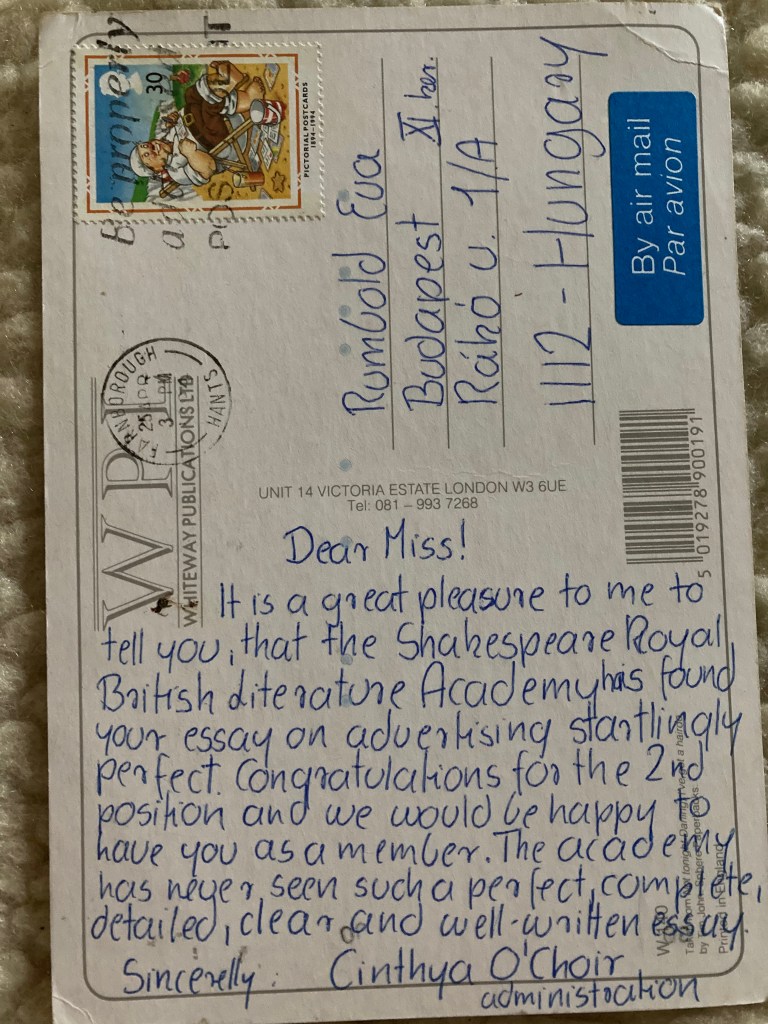 Be properly
POST
39
PICTORIAL POSTCARDS
1894-1994
FARNBOROUGH
HANTS
25 APR
3 PM
WPL
WHITEWAY PUBLICATIONS LTD
UNIT 14 VICTORIA ESTATE LONDON W3 6UE
Tel: 081 – 993 7268
By air mail
Par avion
Rumbold Eva
Budapest XI. ker.
Ráhó u. 1/A
1112 - Hungary
5 019278 900191
Dear Miss!
It is a great pleasure to me to
tell you, that the Shakespeare Royal
British Literature Academy has found
your essay on advertising startlingly
perfect. Congratulations for the 2nd
position and we would be happy to
have you as a member. The academy
has never seen such a perfect, complete,
detailed, clear and well-written essay.
Sincerelly: Cinthya O'Choir
administration
Printed in England